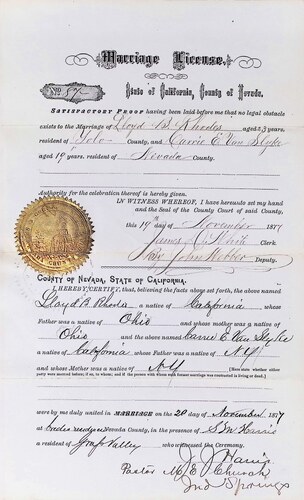 Marriage License.
No. 54
State of California, County of Nevada.
SATISFACTORY PROOF having been laid before me that no legal obstacle
exists to the Marriage of Lloyd B. Rhodes aged 23 years,
resident of Yolo County, and Carrie E. Van Slyke
aged 19 years, resident of Nevada County.
Authority for the celebration thereof is hereby given.
IN WITNESS WHEREOF, I have hereunto set my hand
and the Seal of the County Court of said County,
this 19 day of November 1877
James White Clerk.
John Webber Deputy.
COUNTY OF NEVADA, STATE OF CALIFORNIA.
I HEREBY CERTIFY that, believing the facts above set forth, the above named
Lloyd B. Rhodes a native of California whose
Father was a native of Ohio and whose mother was a native of
Ohio and the above named Carrie E. Van Slyke
a native of California whose Father was a native of N.Y.
and whose Mother was a native of N.Y.
were by me duly united in MARRIAGE on the 20 day of November 1877
at Nevada County, in the presence of Harris
a resident of Grass Valley who witnessed the Ceremony.
J. J. Harris
Pastor M. E. Church
Ind Springs